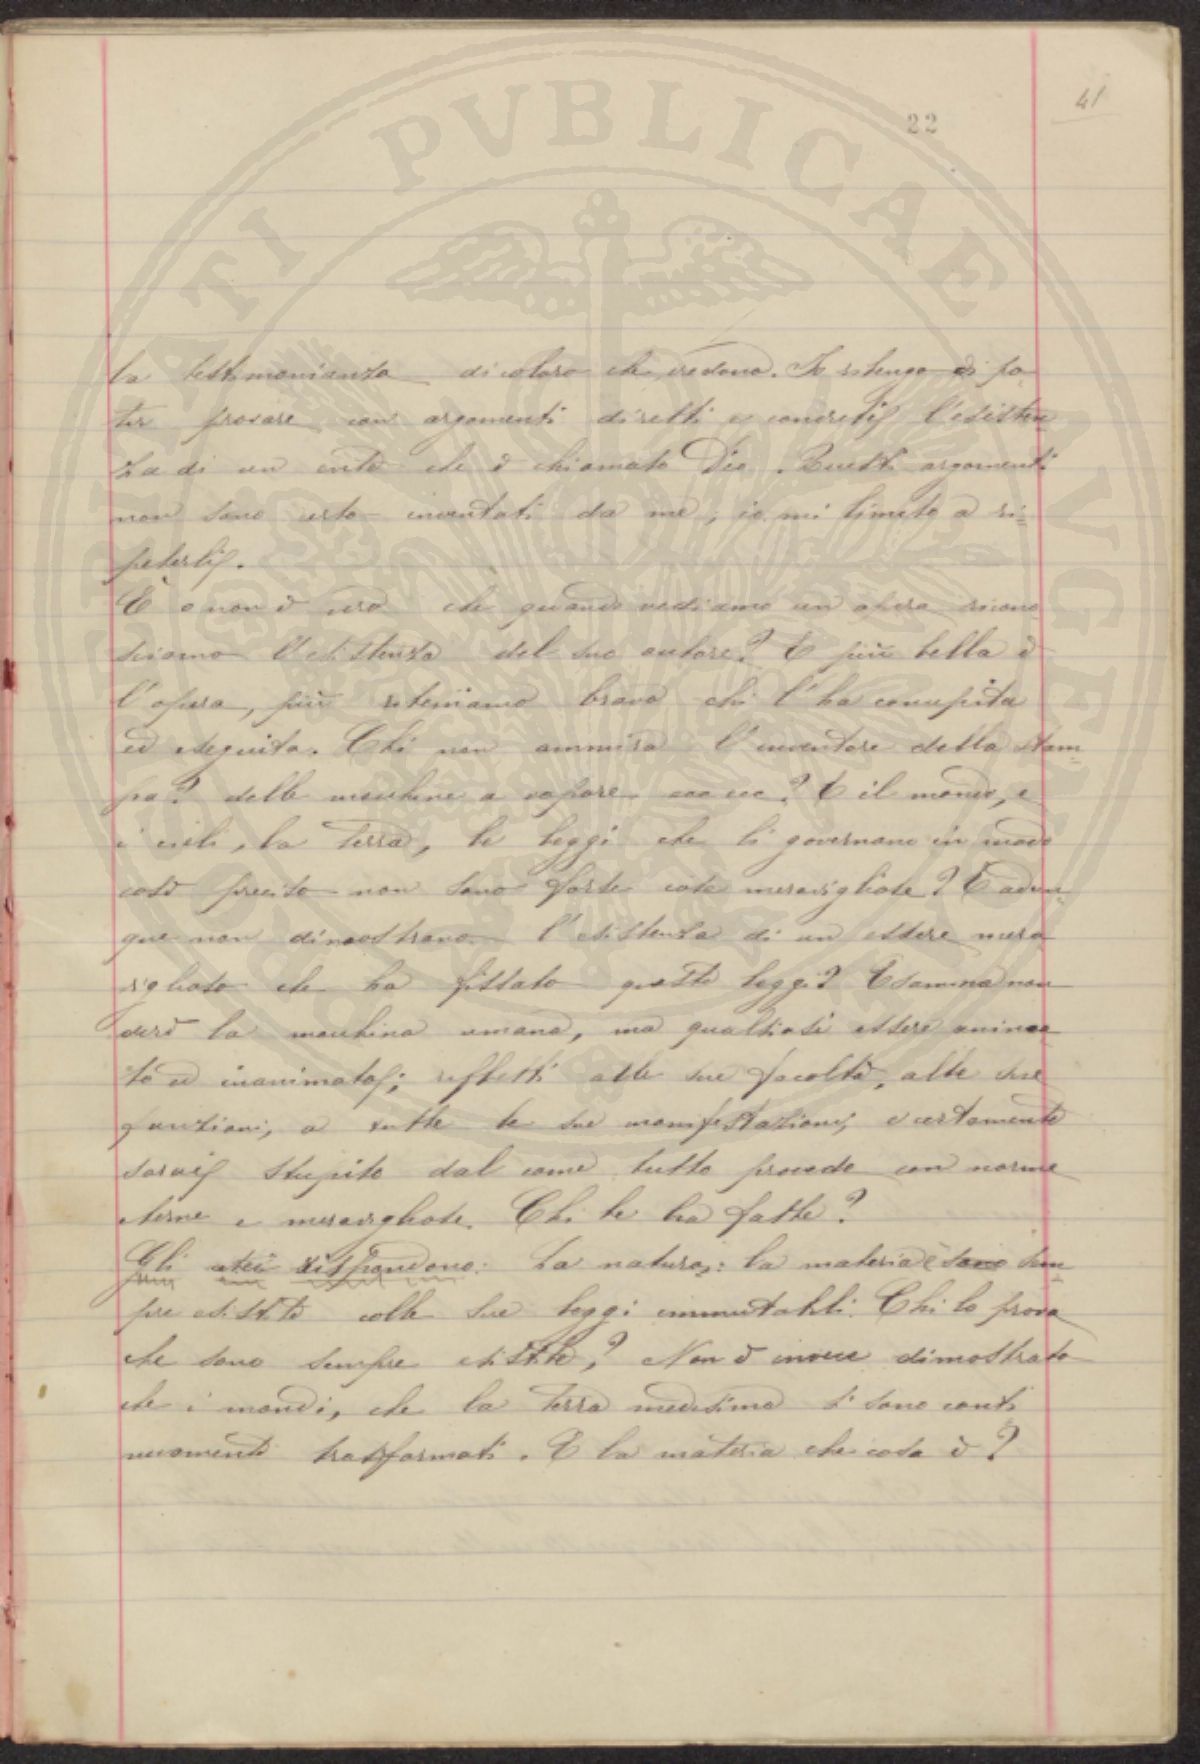 22
41
la testimonianza di coloro che vedono. Io ritengo di po-
ter provare con argomenti diretti e concreti l'esisten
za di un ente che è chiamato Dio. Questi argomenti
non sono certo inventati da me; io mi limito a ri-
peterli.
E o non è vero che quando vediamo un opera ricono
sciamo l'esistenza del suo autore? E più bella è
l'opera, più riteniamo bravo chi l'ha concepita
ed eseguita. Chi non ammira l'inventore della stam-
pa? delle macchine a vapore ecc ecc? E il mondo, e
i cieli, la terra, le leggi che li governano in modo
così preciso non sono forse cose meravigliose? E adun-
que non dimostrano l'esistenza di un essere mera
viglioso che ha fissato queste leggi? Esamina non
dirò la macchina umana, ma qualsiasi essere anima
to ed inanimato; rifletti alle sue facoltà, alle sue
funzioni, a tutte le sue manifestazioni, e certamente
sarai stupito dal come tutto procede con norme
eterne e meravigliose. Chi le ha fatte?
Gli atei rispondono: La natura: la materia è sono sem-
pre esistite colle sue leggi immutabili. Chi lo prova
che sono sempre esistite? Non è invece dimostrato
che i mondi, che la terra medesima si sono conti
nuamente trasformati. E la materia che cosa è?
PVBLICAE